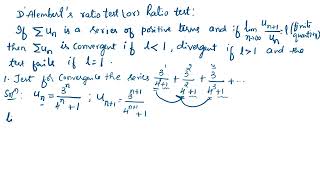 D'Alembert's ratio test (or) Ratio test:
If Σuₙ is a series of positive terms and if lim n→∞ uₙ₊₁/uₙ = l (finite quantity)
then Σuₙ is convergent if l < 1, divergent if l > 1 and the
test fails if l = 1.
1. Test for convergence the series 3¹/(4¹+1) + 3²/(4²+1) + 3³/(4³+1) + ...
Solⁿ: uₙ = 3ⁿ/(4ⁿ+1) ; uₙ₊₁ = 3ⁿ⁺¹/(4ⁿ⁺¹+1)